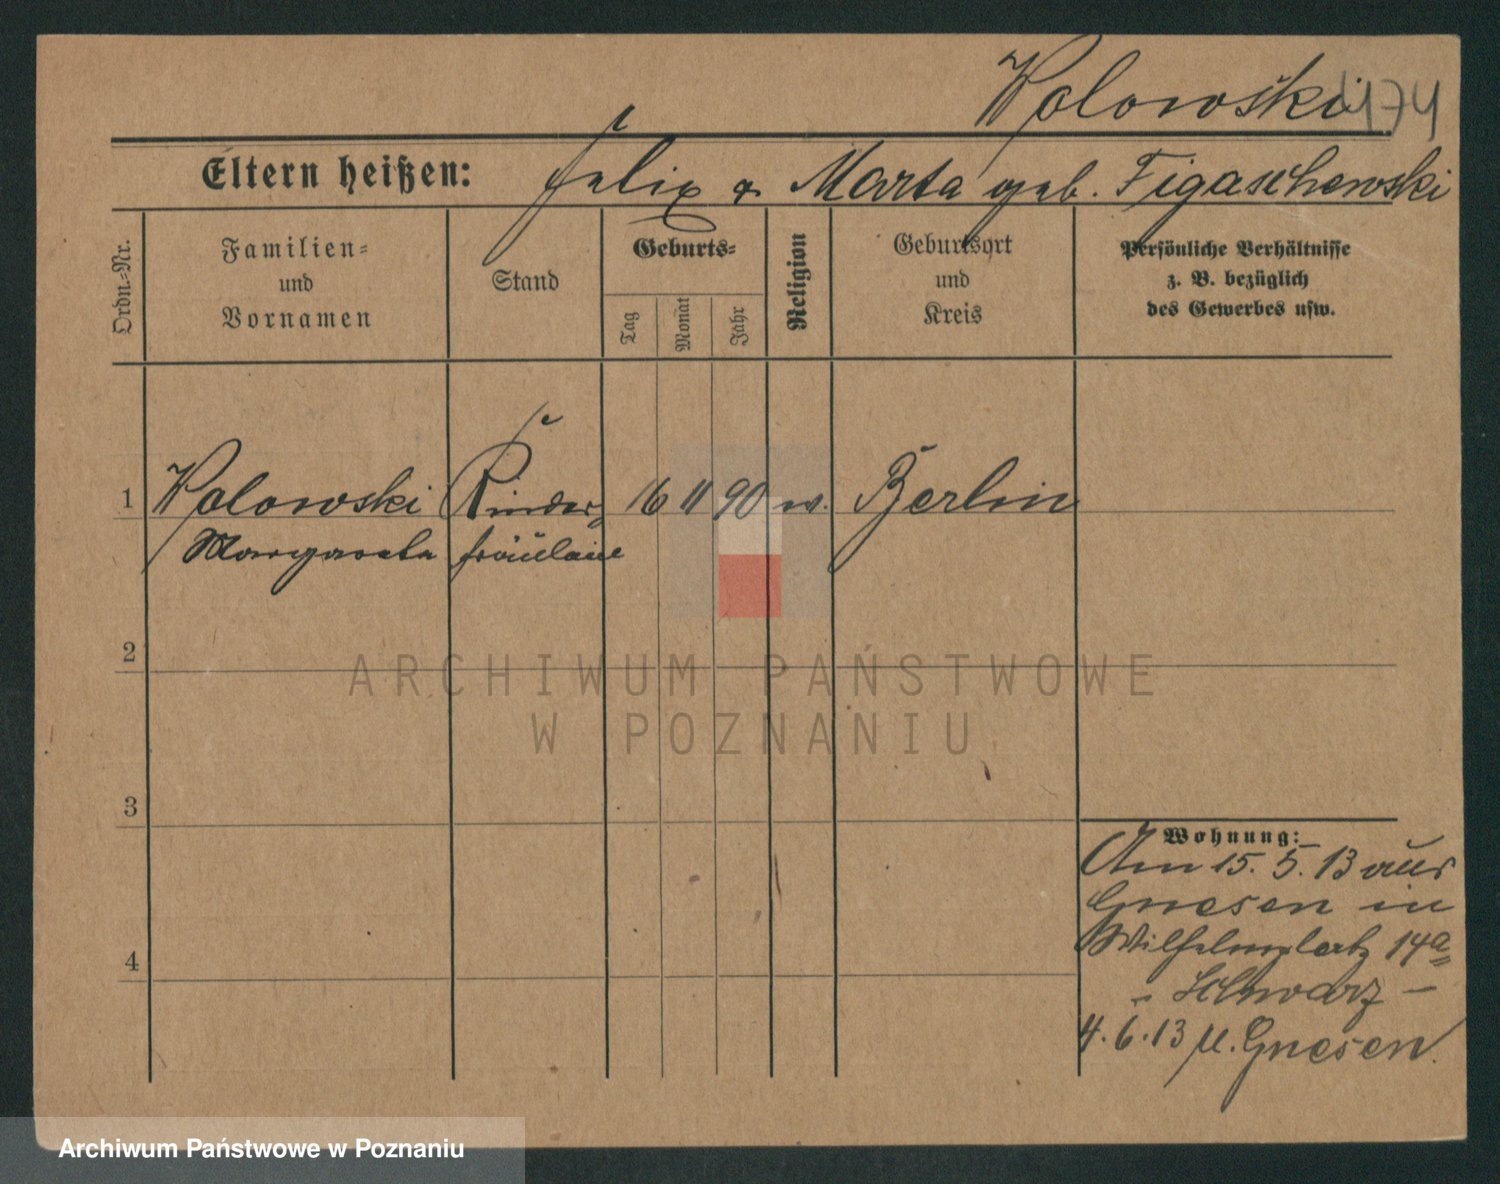 Wolowski 174
Eltern heißen: Felix & Marta geb. Figaschewski
Ordn.-Nr.
Familien-
und
Vornamen
Stand
Geburts-
Tag
Monat
Jahr
Religion
Geburtsort
und
Kreis
Persönliche Verhältnisse
z. B. bezüglich
des Gewerbes usw.
1 Wolowski Kinder 16 11 90 w. Berlin
Margareta fräulein
2
ARCHIWUM PAŃSTWOWE
W POZNANIU
3
Wohnung:
Am 15. 5. 13 aus
Gnesen in
4 Wilhelmplatz 14a
Schwarz –
4. 6. 13 n. Gnesen.
Archiwum Państwowe w Poznaniu